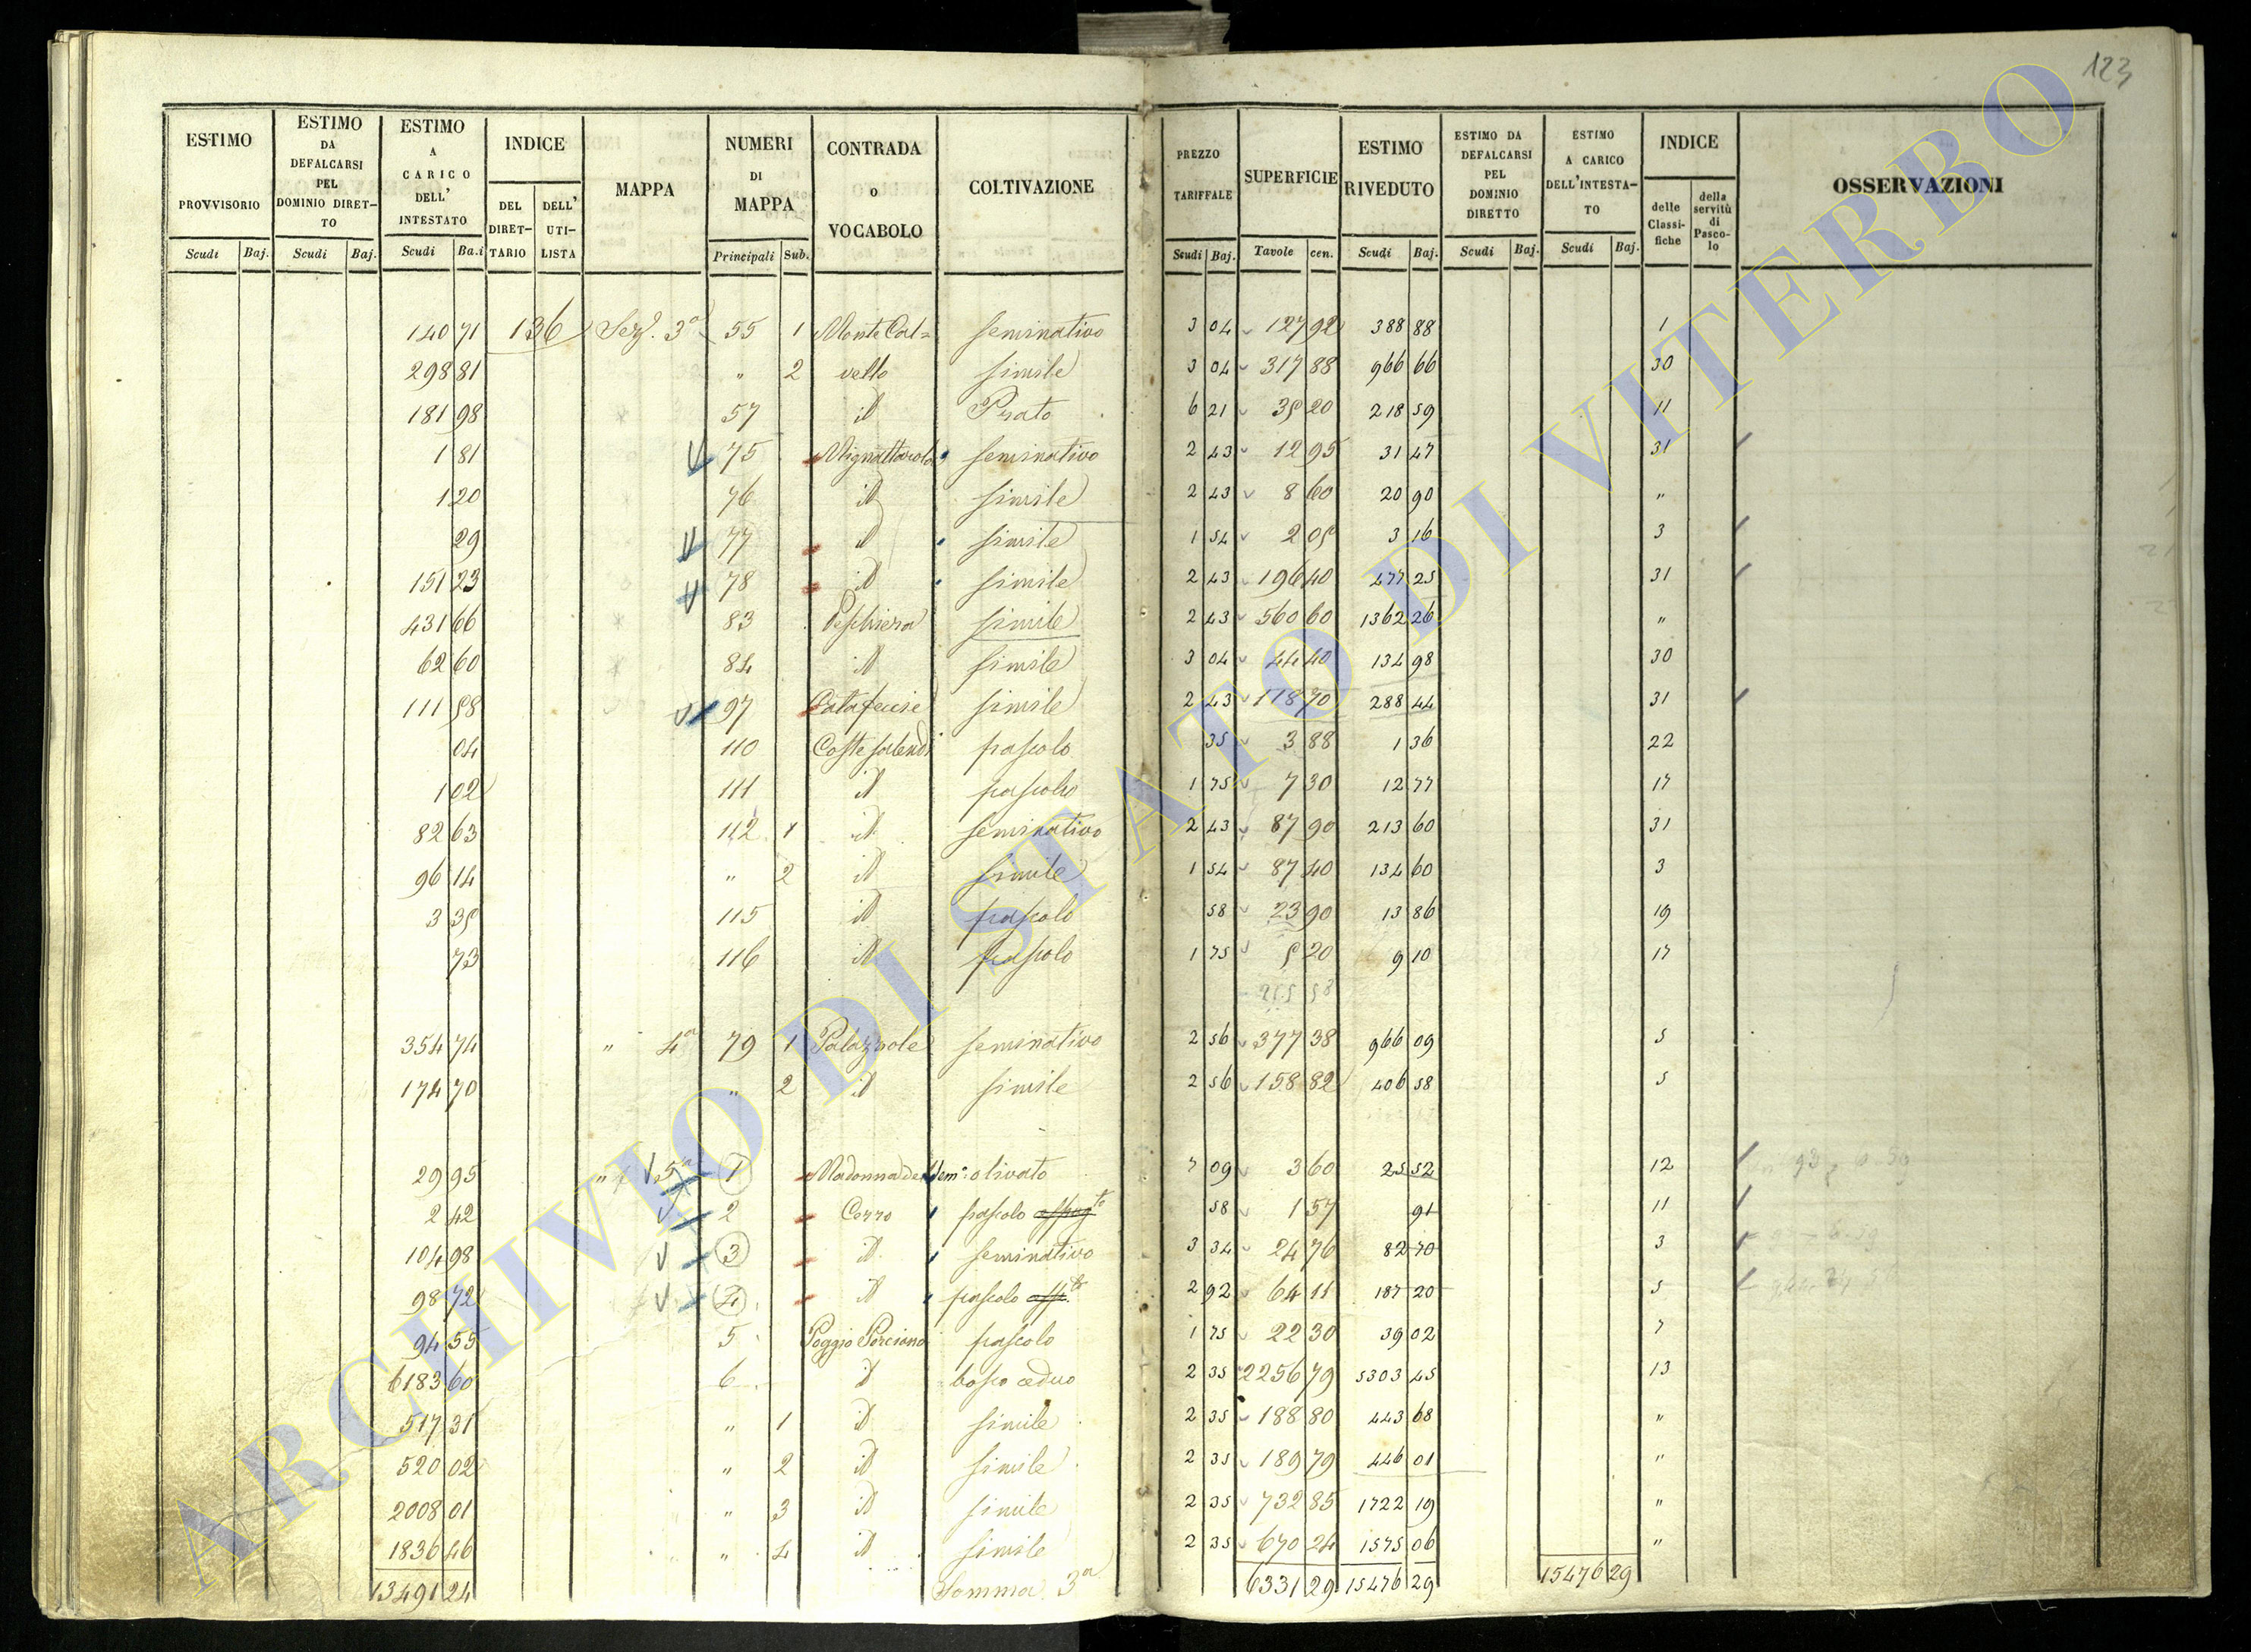 123
ESTIMO PROVVISORIO
ESTIMO DA DEFALCARSI PEL DOMINIO DIRETTO
ESTIMO A CARICO DELL' INTESTATO
INDICE
DEL DIRETTARIO
DELL' UTILISTA
MAPPA
NUMERI DI MAPPA
CONTRADA o VOCABOLO
COLTIVAZIONE
PREZZO TARIFFALE
SUPERFICIE
ESTIMO RIVEDUTO
ESTIMO DA DEFALCARSI PEL DOMINIO DIRETTO
ESTIMO A CARICO DELL'INTESTATO
INDICE
delle Classifiche
della servitù di Pascolo
OSSERVAZIONI
Scudi Baj. Scudi Baj. Scudi Ba.i Principali Sub. Scudi Baj. Tavole cen. Scudi Baj. Scudi Baj. Scudi Baj.
140 71 136 Sez. 3a 55 1 Monte Cal= seminativo 3 04 127 92 388 88 1
298 81 " 2 vello simile 3 04 317 88 966 66 30
181 98 57 id Prato 6 21 35 20 218 59 11
1 81 75 Mignattarola seminativo 2 43 12 95 31 47 31
1 20 76 id simile 2 43 8 60 20 90 "
29 77 id simile 1 54 2 05 3 16 3
151 23 78 id simile 2 43 196 40 477 25 31
431 66 83 Peschiera simile 2 43 560 60 1362 26 "
62 60 84 id simile 3 04 44 40 134 98 30
111 58 97 simile 2 43 118 70 288 44 31
04 110 pascolo 35 3 88 1 36 22
1 02 111 id pascolo 1 75 7 30 12 77 17
82 63 112 1 id seminativo 2 43 87 90 213 60 31
96 14 " 2 id simile 1 54 87 40 134 60 3
3 35 115 id pascolo 58 23 90 13 86 19
73 116 id pascolo 1 75 5 20 9 10 17
354 74 " 4a 79 1 Palazzole seminativo 2 56 377 38 966 09 5
174 70 " 2 id simile 2 56 158 82 406 58 5
29 95 " 5a 1 Madonna del Sem: olivato 7 09 3 60 25 52 12
2 42 2 Cerro pascolo 58 1 57 91 11
104 98 3 id seminativo 3 34 24 76 82 70 3
98 72 4 id pascolo 2 92 64 11 187 20 5
94 55 5 Poggio Porciano pascolo 1 75 22 30 39 02 7
6183 60 6 id bosco ceduo 2 35 2256 79 5303 45 13
517 31 " 1 id simile 2 35 188 80 443 68 "
520 02 " 2 id simile 2 35 189 79 446 01 "
2008 01 " 3 id simile 2 35 732 85 1722 19 "
1836 46 " 4 id simile 2 35 670 24 1575 06 "
13491 24 Somma 3a 6331 29 15476 29 15476 29
ARCHIVIO DI STATO DI VITERBO